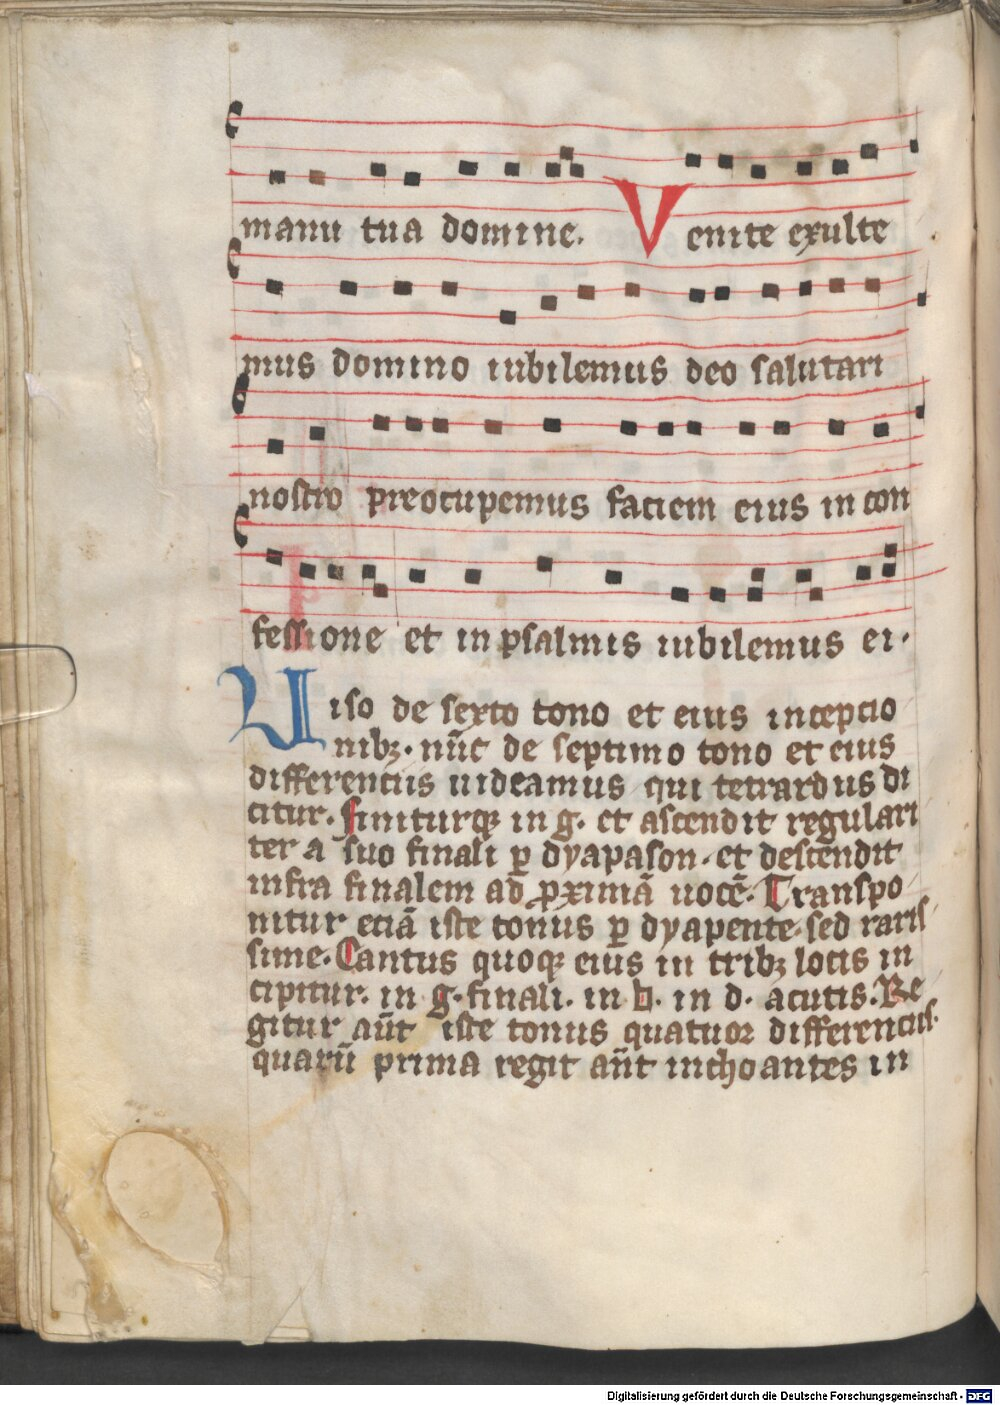 manu tua domine. Venite exulte
mus domino iubilemus deo salutari
nostro preocupemus faciem eius in con
fessione et in psalmis iubilemus ei.
Uiso de sexto tono et eius inceptio
nibꝫ. nūc de septimo tono et eius
differentiis uideamus qui tetrardus di
citur. finiturqꝫ in g. et ascendit regulari
ter a suo finali ꝑ dyapason. et descendit
infra finalem ad ꝓximā uocē. Transpo
nitur eciā iste tonus ꝑ dyapente. sed raris
sime. Cantus quoqꝫ eius in tribꝫ locis in
cipitur. in g. finali. in b. in d. acutis. Re
gitur aūt iste tonus quatuor differenciis.
quarū prima regit añt inchoantes in
Digitalisierung gefördert durch die Deutsche Forschungsgemeinschaft - DFG